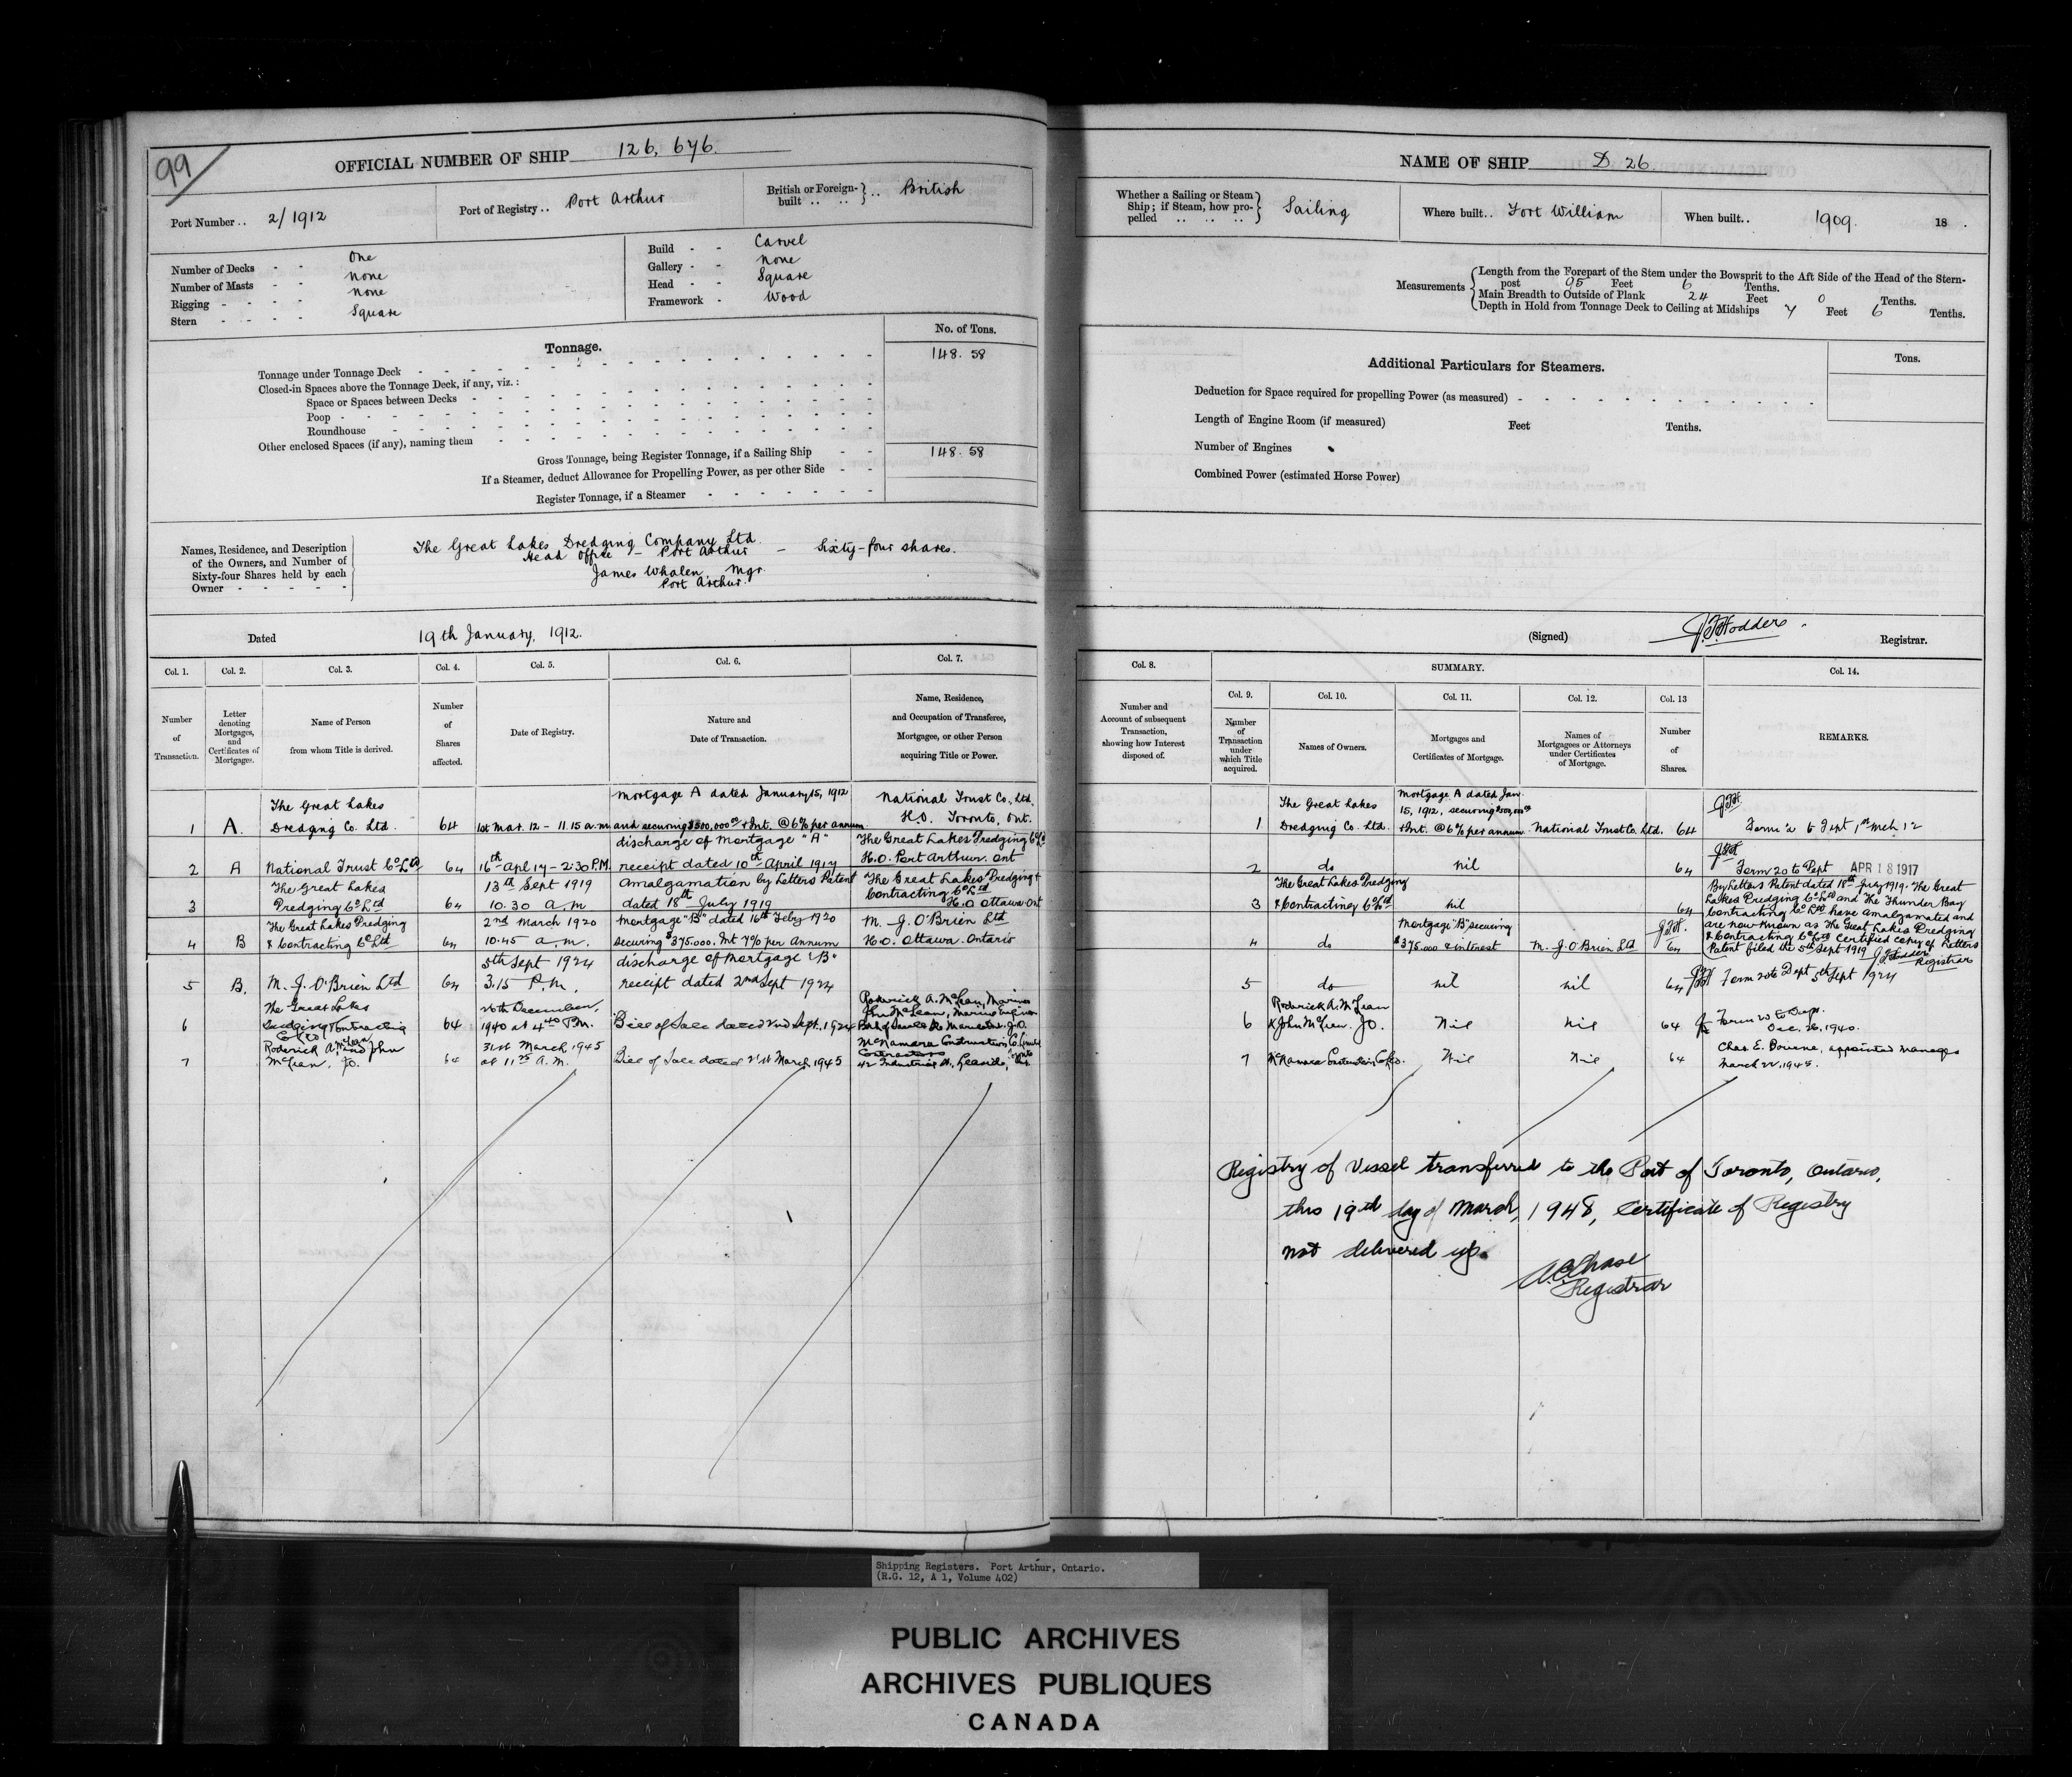 99
OFFICIAL NUMBER OF SHIP 126,676.
Port Number .. 2/1912
Port of Registry .. Port Arthur
British or Foreign-built .. .. British
Number of Decks - - One
Number of Masts - - None
Rigging - - - - None
Stern - - - - Square
Build - - Carvel
Gallery - - None
Head - - Square
Framework - Wood
Tonnage.
No. of Tons.
Tonnage under Tonnage Deck 148.58
Closed-in Spaces above the Tonnage Deck, if any, viz. :
Space or Spaces between Decks
Poop
Roundhouse
Other enclosed Spaces (if any), naming them
Gross Tonnage, being Register Tonnage, if a Sailing Ship 148.58
If a Steamer, deduct Allowance for Propelling Power, as per other Side
Register Tonnage, if a Steamer
Names, Residence, and Description of the Owners, and Number of Sixty-four Shares held by each Owner
The Great Lakes Dredging Company Ltd.
Head Office - Port Arthur - Sixty-four shares.
James Whalen Mgr.
Port Arthur.
Dated 19th January, 1912.
Col. 1. Col. 2. Col. 3. Col. 4. Col. 5. Col. 6. Col. 7.
Number of Transaction.
Letter denoting Mortgages, and Certificates of Mortgages.
Name of Person from whom Title is derived.
Number of Shares affected.
Date of Registry.
Nature and Date of Transaction.
Name, Residence, and Occupation of Transferee, Mortgagee, or other Person acquiring Title or Power.
1 A. The Great Lakes Dredging Co. Ltd. 64 1st Mar. 12 - 11.15 a.m. Mortgage A dated January 15, 1912 and securing $500,000.00 & Int. @ 6% per annum National Trust Co., Ltd. H.O. Toronto, Ont.
2 A National Trust Co Ltd 64 16th Apl 17 - 2:30 P.M. discharge of Mortgage "A" receipt dated 10th April 1917 The Great Lakes Dredging Co Ld H.O. Port Arthur. Ont
3 The Great Lakes Dredging Co Ltd 64 13th Sept 1919 10.30 a m Amalgamation by Letters Patent dated 18th July 1919 The Great Lakes Dredging & Contracting Co Ltd H.O Ottawa Ont
4 B The Great Lakes Dredging & Contracting Co Ltd 64 2nd March 1920 10.45 a.m. Mortgage "B" dated 16th Feby 1920 securing $375.000. Int 7% per annum M. J. O'Brien Ltd H.O. Ottawa. Ontario
5 B. M. J. O'Brien Ltd 64 5th Sept 1924 3.15 P.m. discharge of Mortgage "B" receipt dated 2nd Sept 1924
6 The Great Lakes Dredging & Contracting Co Ltd 64 26th December, 1940 at 4 40 P.M. Bill of Sale dated 2nd Sept. 1924 Roderick A. McLean, Mariner John McLean, Marine Engineer Both of Sault Ste Marie Ont. J.O.
7 Roderick A. McLean and John McLean, J.O. 64 31st March 1945 at 11 25 A.M. Bill of Sale dated 21st March 1945 McNamara Construction Co. Limited Contractors 42 Industrial St., Leaside, Toronto Ont.
NAME OF SHIP D. 26.
Whether a Sailing or Steam Ship; if Steam, how propelled .. .. .. .. Sailing
Where built.. Fort William
When built.. 1909. 18 .
Measurements
Length from the Forepart of the Stem under the Bowsprit to the Aft Side of the Head of the Stern-
post 95 Feet 6 Tenths.
Main Breadth to Outside of Plank 24 Feet 0 Tenths.
Depth in Hold from Tonnage Deck to Ceiling at Midships 7 Feet 6 Tenths.
Additional Particulars for Steamers.
Tons.
Deduction for Space required for propelling Power (as measured)
Length of Engine Room (if measured) Feet Tenths.
Number of Engines
Combined Power (estimated Horse Power)
(Signed) J.F. Hodder. Registrar.
Col. 8. SUMMARY. Col. 14.
Col. 9. Col. 10. Col. 11. Col. 12. Col. 13
Number and Account of subsequent Transaction, showing how Interest disposed of.
Number of Transaction under which Title acquired.
Names of Owners.
Mortgages and Certificates of Mortgage.
Names of Mortgagees or Attorneys under Certificates of Mortgage.
Number of Shares.
REMARKS.
1 The Great Lakes Dredging Co. Ltd. Mortgage A dated Jan. 15, 1912, securing $500,000.00 & Int. @ 6% per annum National Trust Co. Ltd. 64
2 do nil 64 Form 20 to Dept APR 18 1917
3 The Great Lakes Dredging & Contracting Co Ltd nil 64
By Letters Patent dated 18th July 1919. The Great
Lakes Dredging Co Ltd and The Thunder Bay
Contracting Co Ltd have amalgamated and
are now known as The Great Lakes Dredging
& Contracting Co Ltd Certified copy of Letters
Patent filed the 5th Sept 1919 J F Hodder Registrar
4 do Mortgage "B" securing $375.000 & interest M. J. O'Brien Ltd 64
5 do nil nil 64 Form 20 to Dept 5th Sept 1924
6 Roderick A. McLean & John McLean. J.O. Nil Nil 64 Form 20 to Dept. Dec. 26, 1940.
7 McNamara Construction Co Ltd. Nil Nil 64 Chas E. Bourne, appointed manager March 22, 1945.
Registry of Vessel transferred to the Port of Toronto, Ontario,
this 19th day of March, 1948, Certificate of Registry
not delivered up.
Registrar
Shipping Registers. Port Arthur, Ontario.
(R.G. 12, A 1, Volume 402)
PUBLIC ARCHIVES
ARCHIVES PUBLIQUES
CANADA